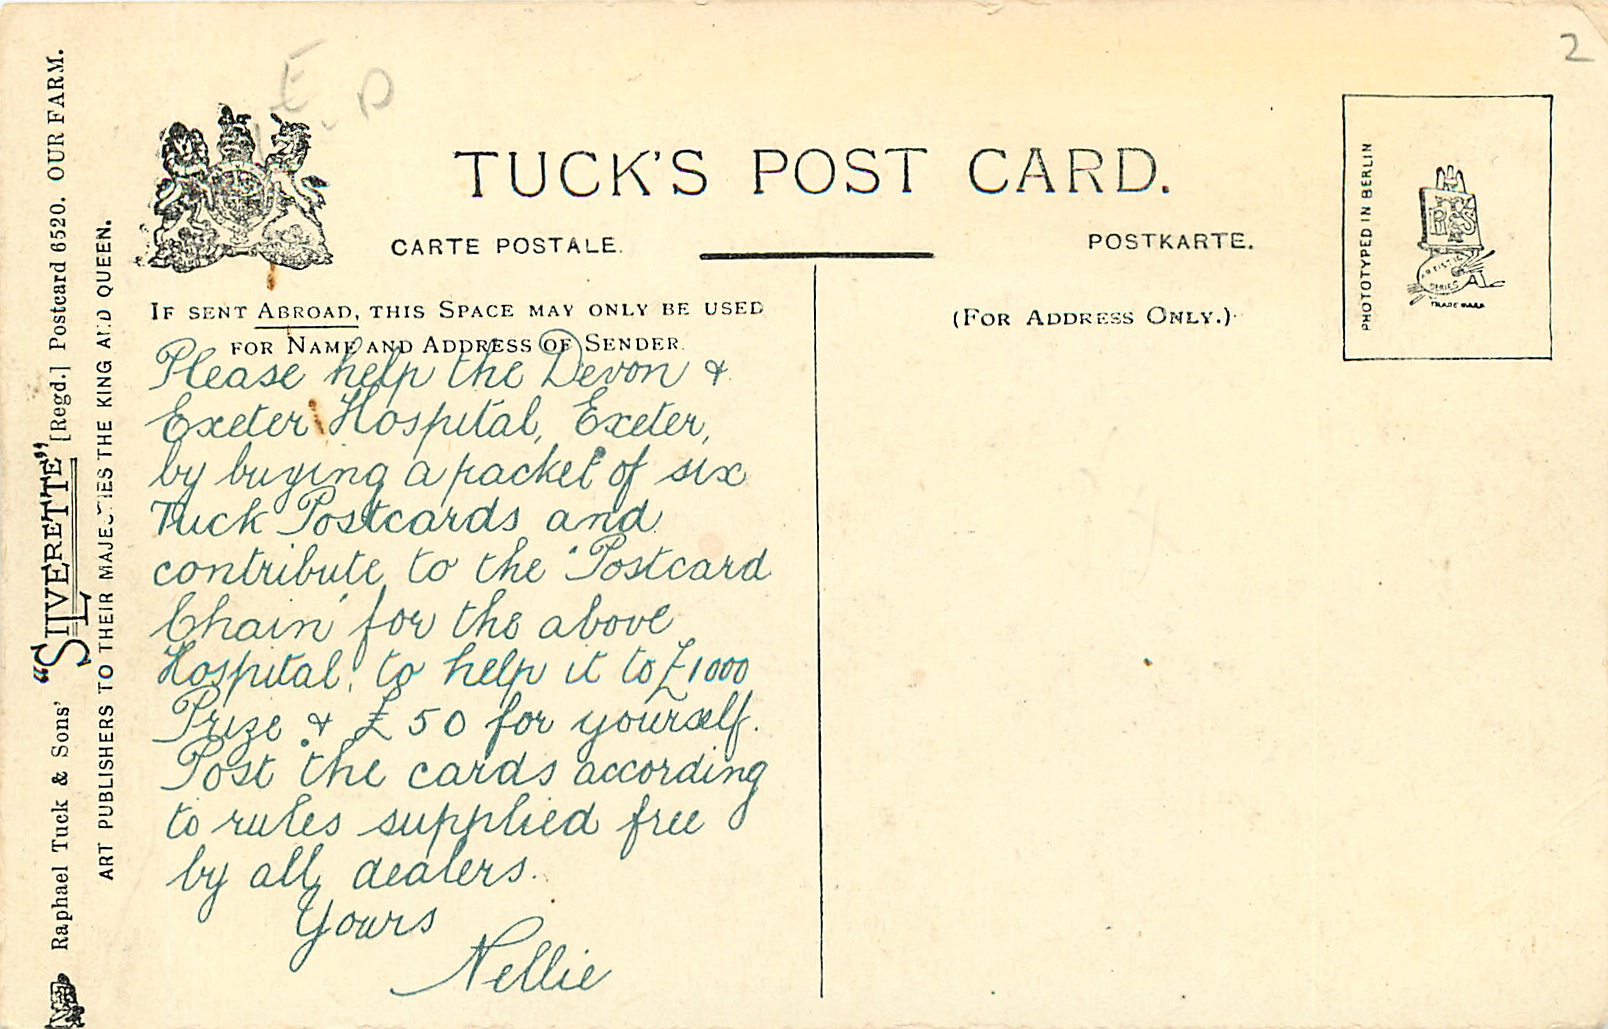 2
E. D
TUCK'S POST CARD.
CARTE POSTALE.
POSTKARTE.
IF SENT ABROAD, THIS SPACE MAY ONLY BE USED
FOR NAME AND ADDRESS OF SENDER.
(FOR ADDRESS ONLY.)
PHOTOTYPED IN BERLIN
ARTISTIC
SERIES
TRADE MARK
Please help the Devon &
Exeter Hospital, Exeter,
by buying a packet of six
Tuck Postcards and
contribute to the "Postcard
Chain" for the above
Hospital, to help it to £1000
Prize & £50 for yourself.
Post the cards according
to rules supplied free
by all dealers.
Yours
Nellie
Raphael Tuck & Sons' "SILVERETTE" [Regd.] Postcard 6520. OUR FARM.
ART PUBLISHERS TO THEIR MAJESTIES THE KING AND QUEEN.